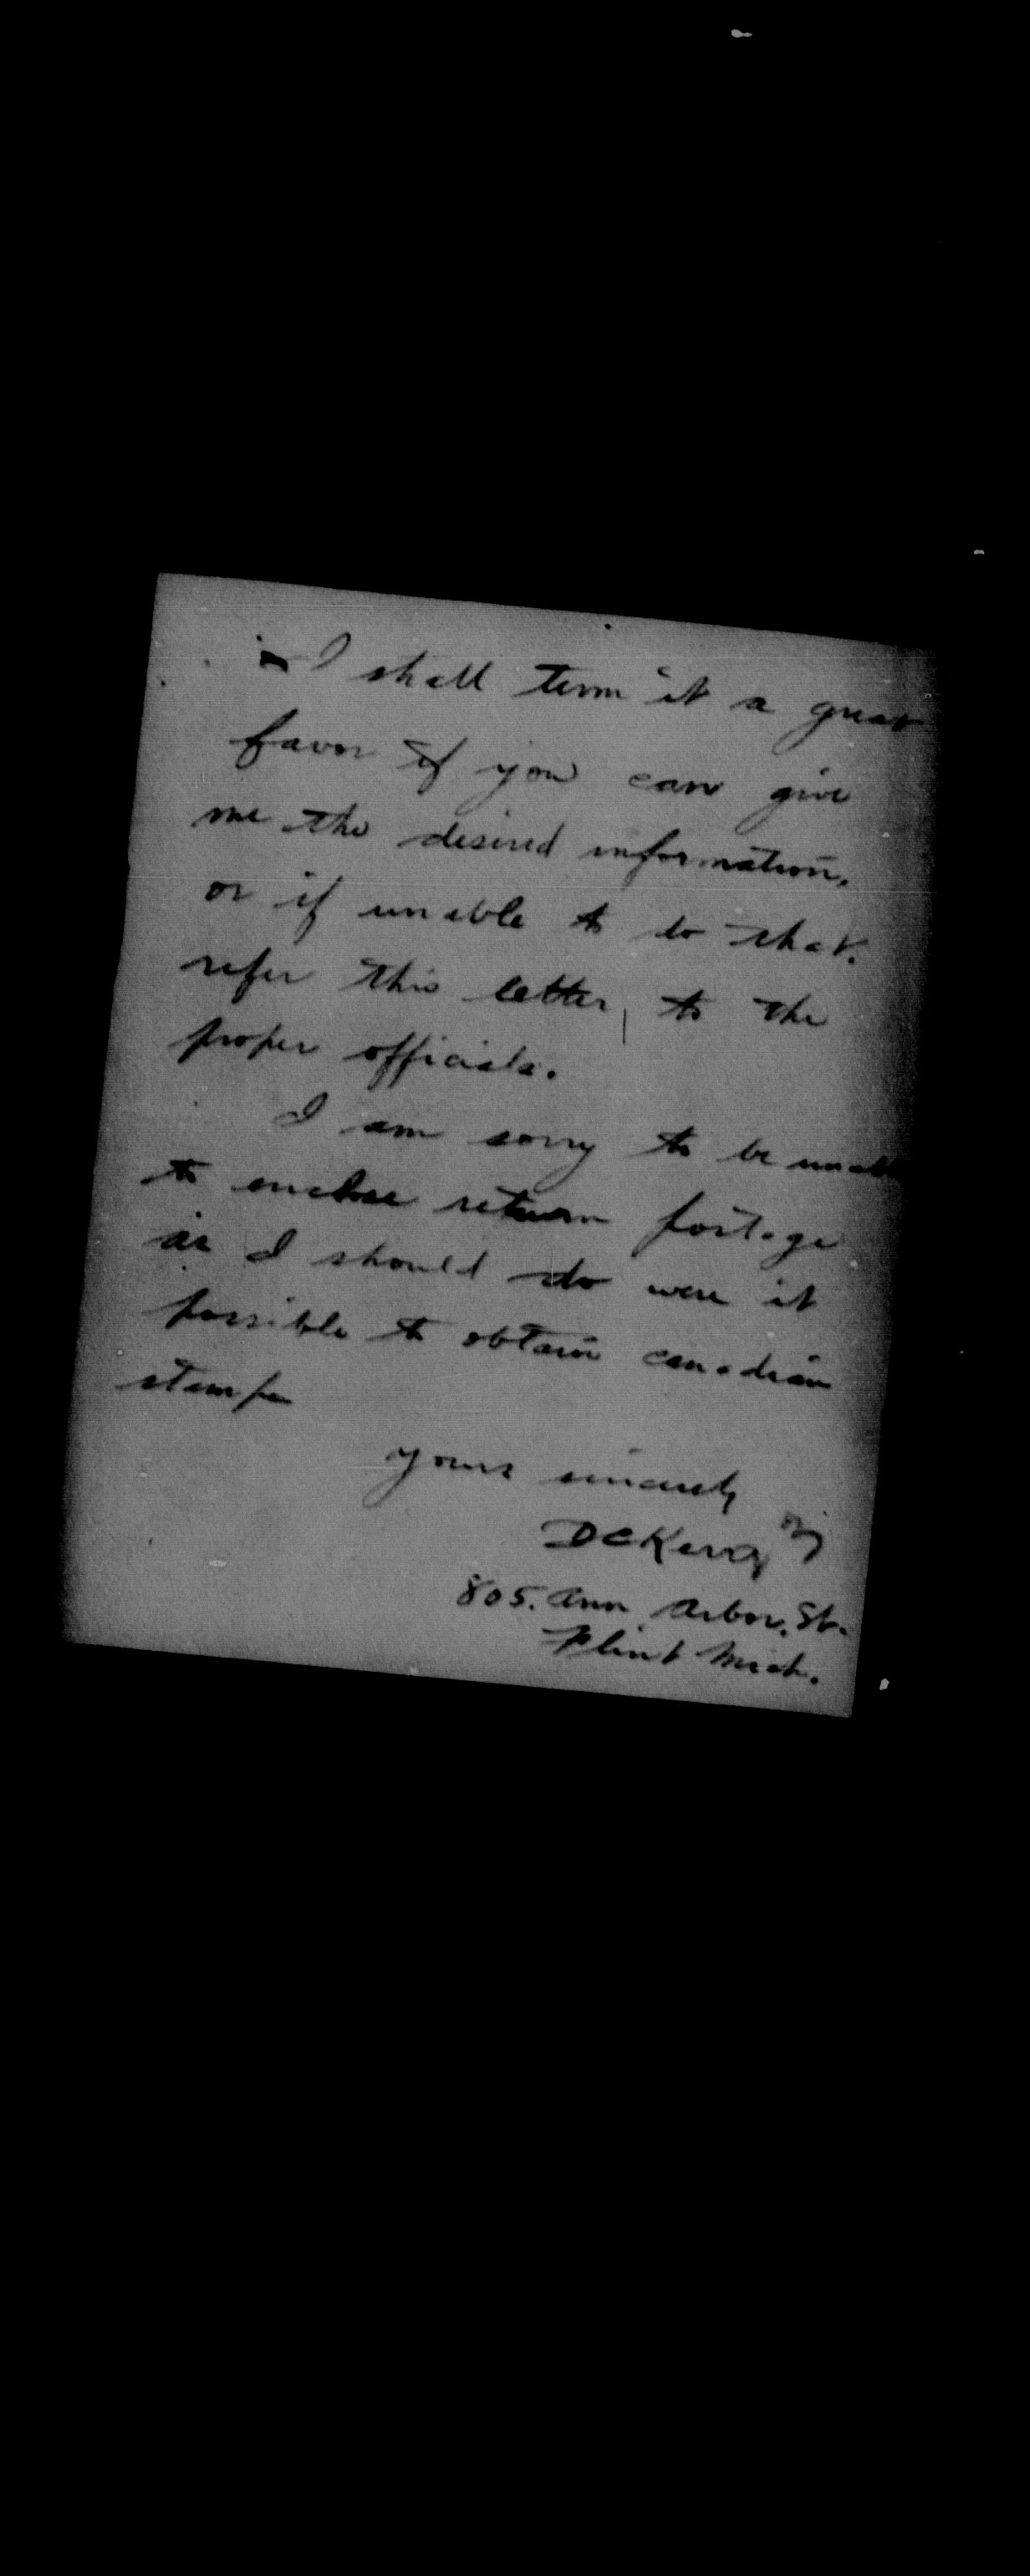 I shall term it a great
favor if you can give
me the desired information.
or if unable to do that.
refer this letter, to the
proper officials.
I am sorry to be unable
to enclose return postage
as I should do were it
possible to obtain canadian
stamps
yours sincerely
805. Ann Arbor. St.
Flint Mich.